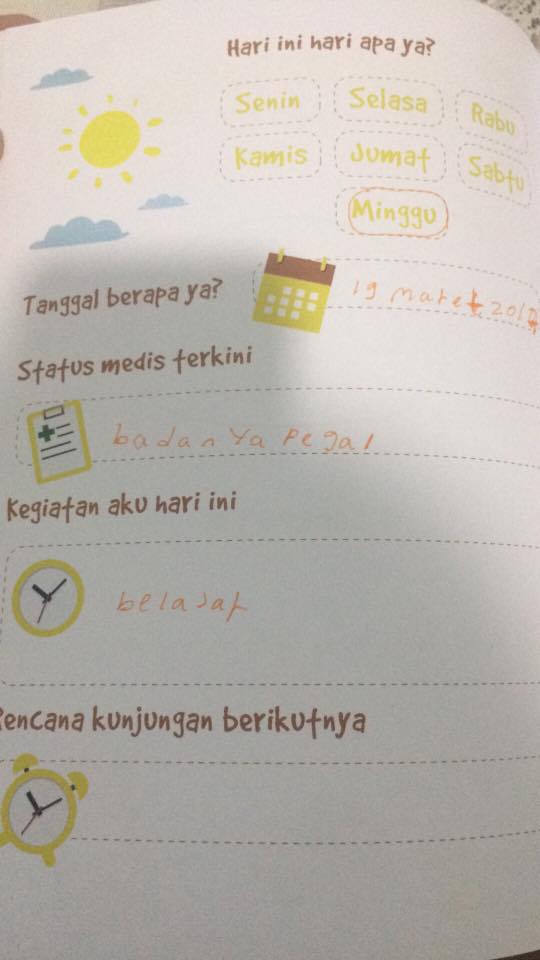 Hari ini hari apa ya?
Senin Selasa Rabu
Kamis Jumat Sabtu
Minggu
Tanggal berapa ya? 19 maret 2017
Status medis terkini
badanya pegal
Kegiatan aku hari ini
belajar
Rencana kunjungan berikutnya